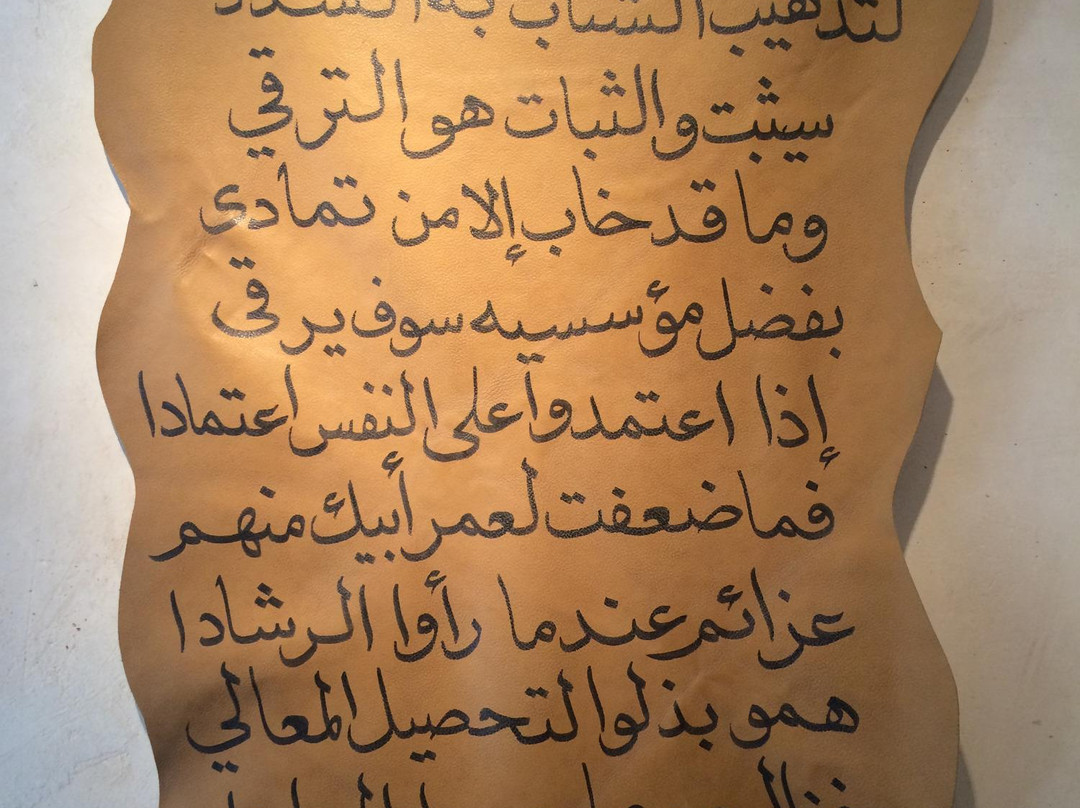 لتهذيب الشباب به
سيثبت والثبات هو الترقي
وما قد خاب إلا من تمادى
بفضل مؤسسيه سوف يرقى
إذا اعتمدوا على النفس اعتمادا
فما ضعفت لعمر أبيك منهم
عزائم عندما رأوا الرشادا
همو بذلوا لتحصيل المعالي